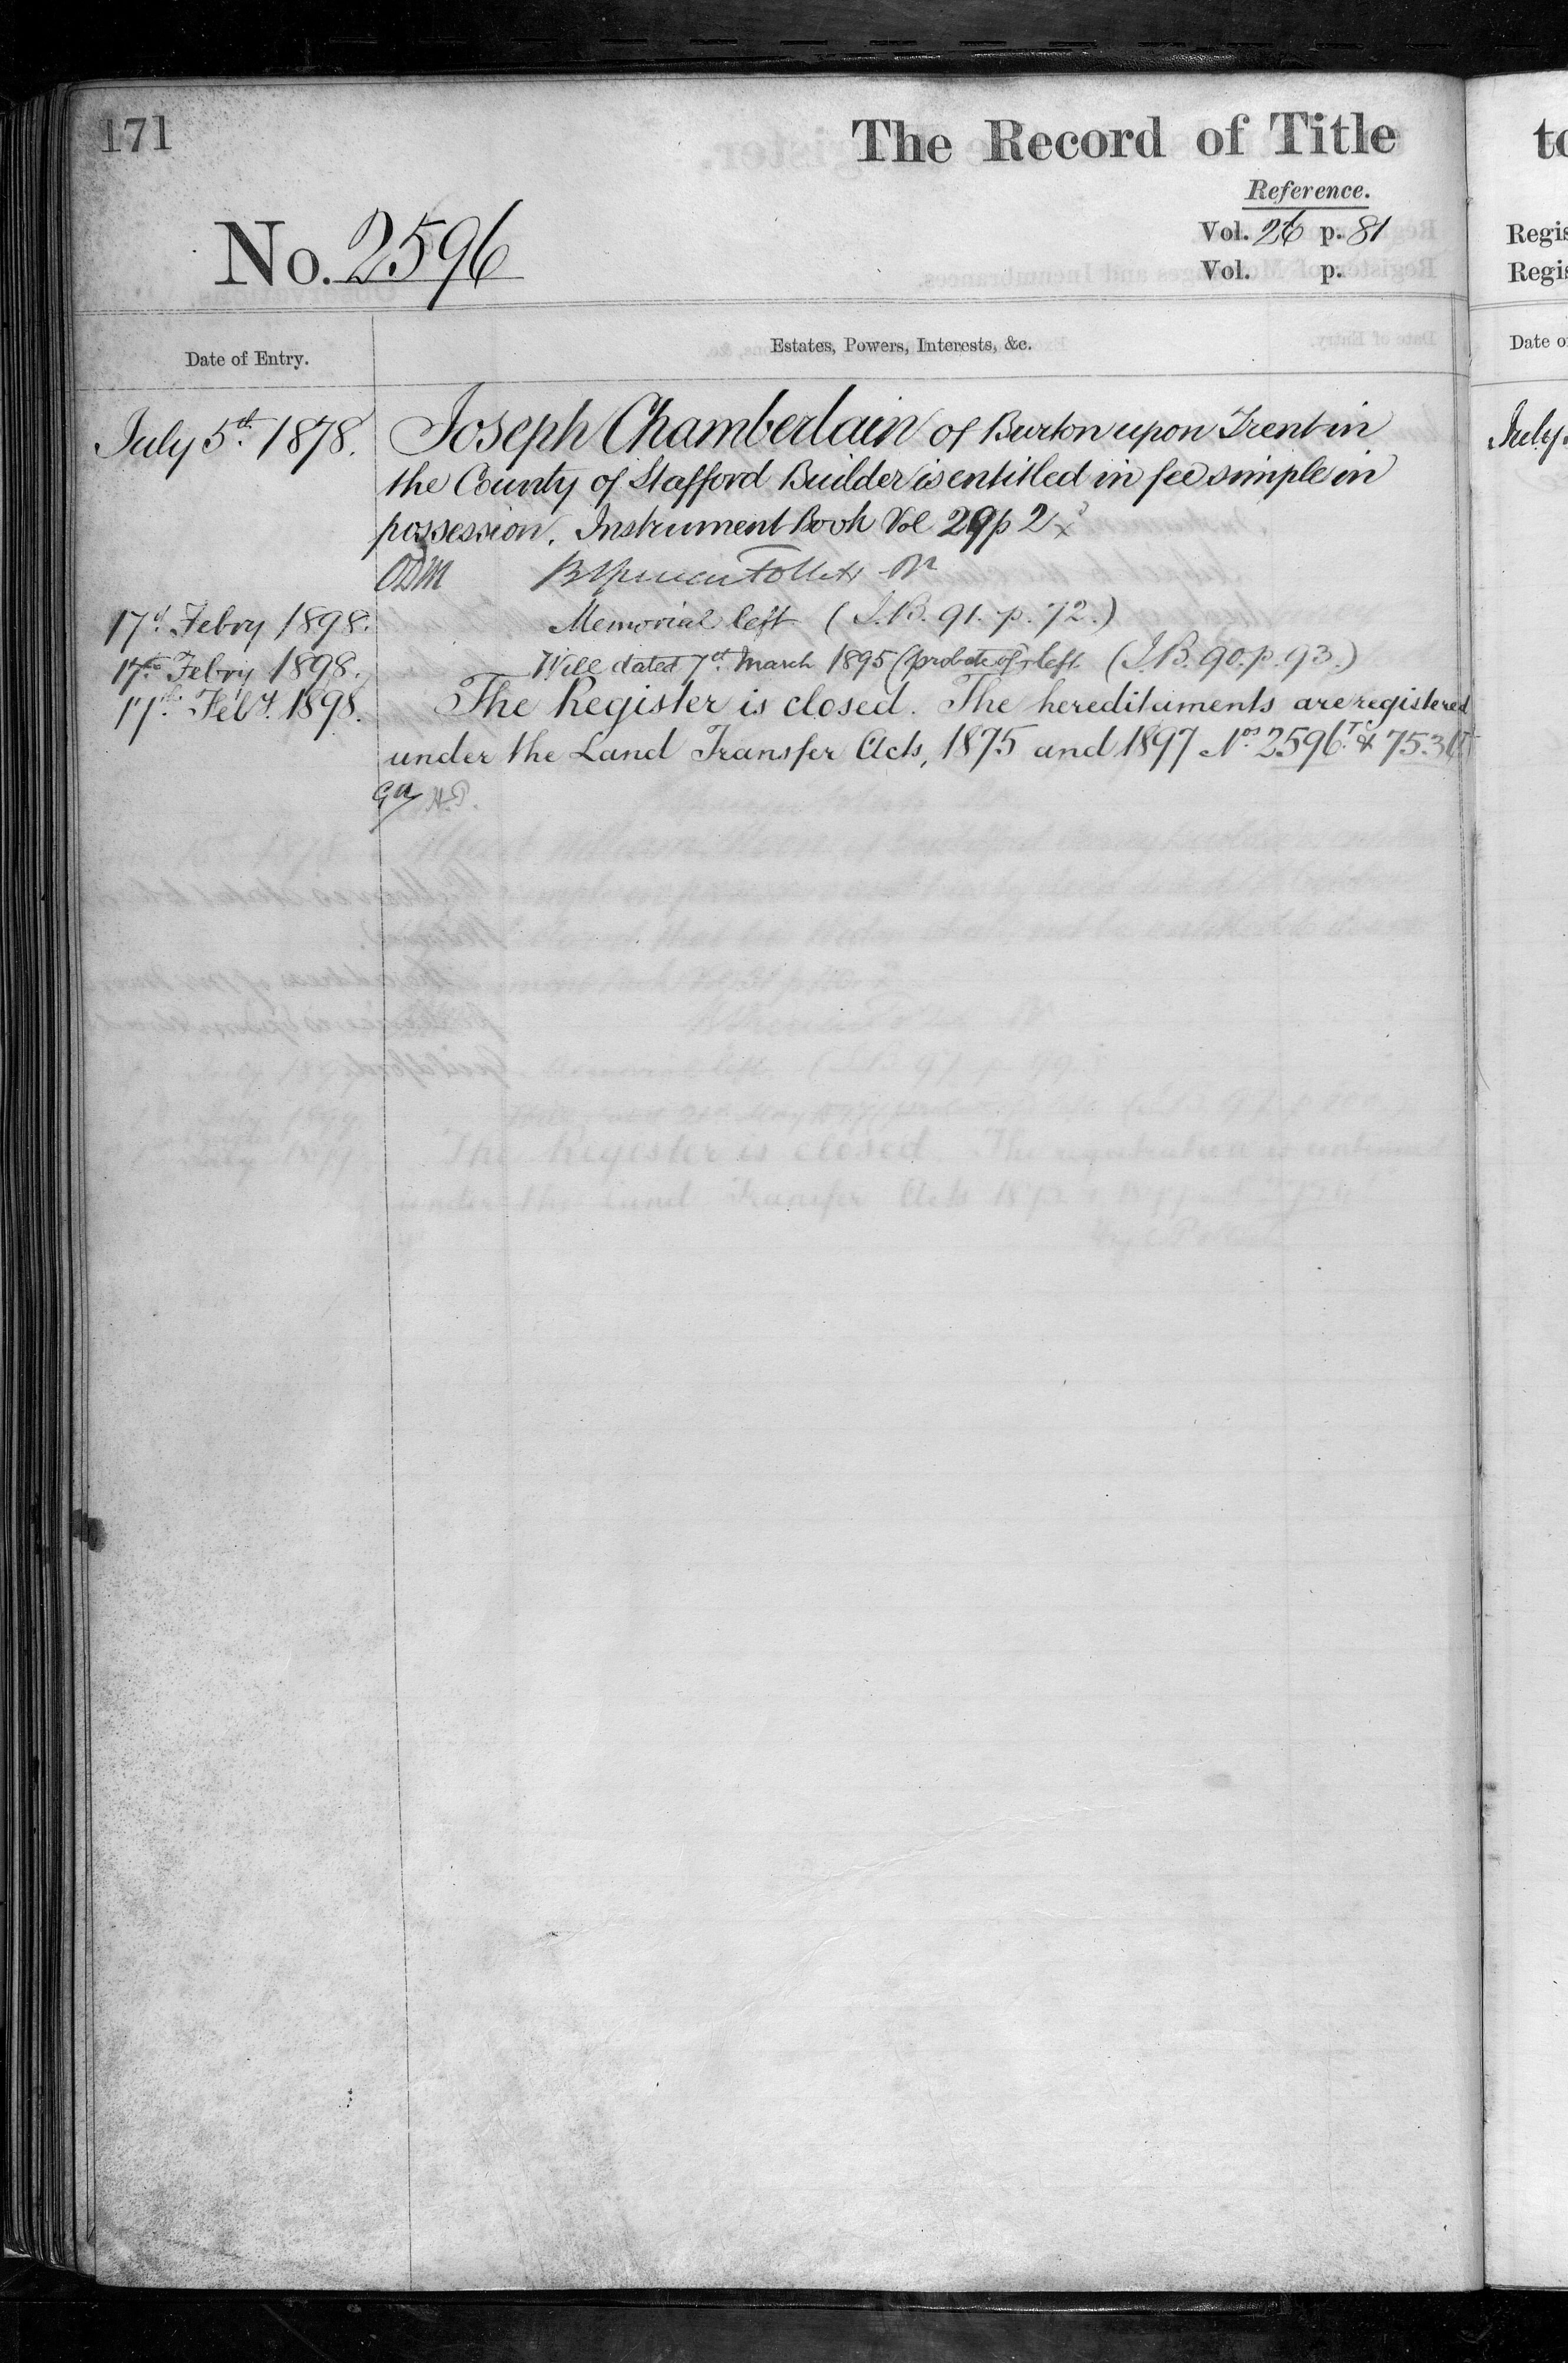 171
The Record of Title
Reference.
No. 2596
Vol. 26 p. 81
Vol. p.
Date of Entry.
Estates, Powers, Interests, &c.
July 5th 1878. Joseph Chamberlain of Burton upon Trent in
the County of Stafford Builder is entitled in fee simple in
possession. Instrument Book Vol 29 p 2
ODM
17th Febry 1898. Memorial left (I.B. 91. p. 72.)
17th Febry 1898. Will dated 7th March 1895 (probate of) left (I.B. 90. p. 93.)
17th Feby. 1898. The Register is closed. The hereditaments are registered
under the Land Transfer Acts, 1875 and 1897 Nos 2596
H.P.
to
Regis
Regis
Date o
July